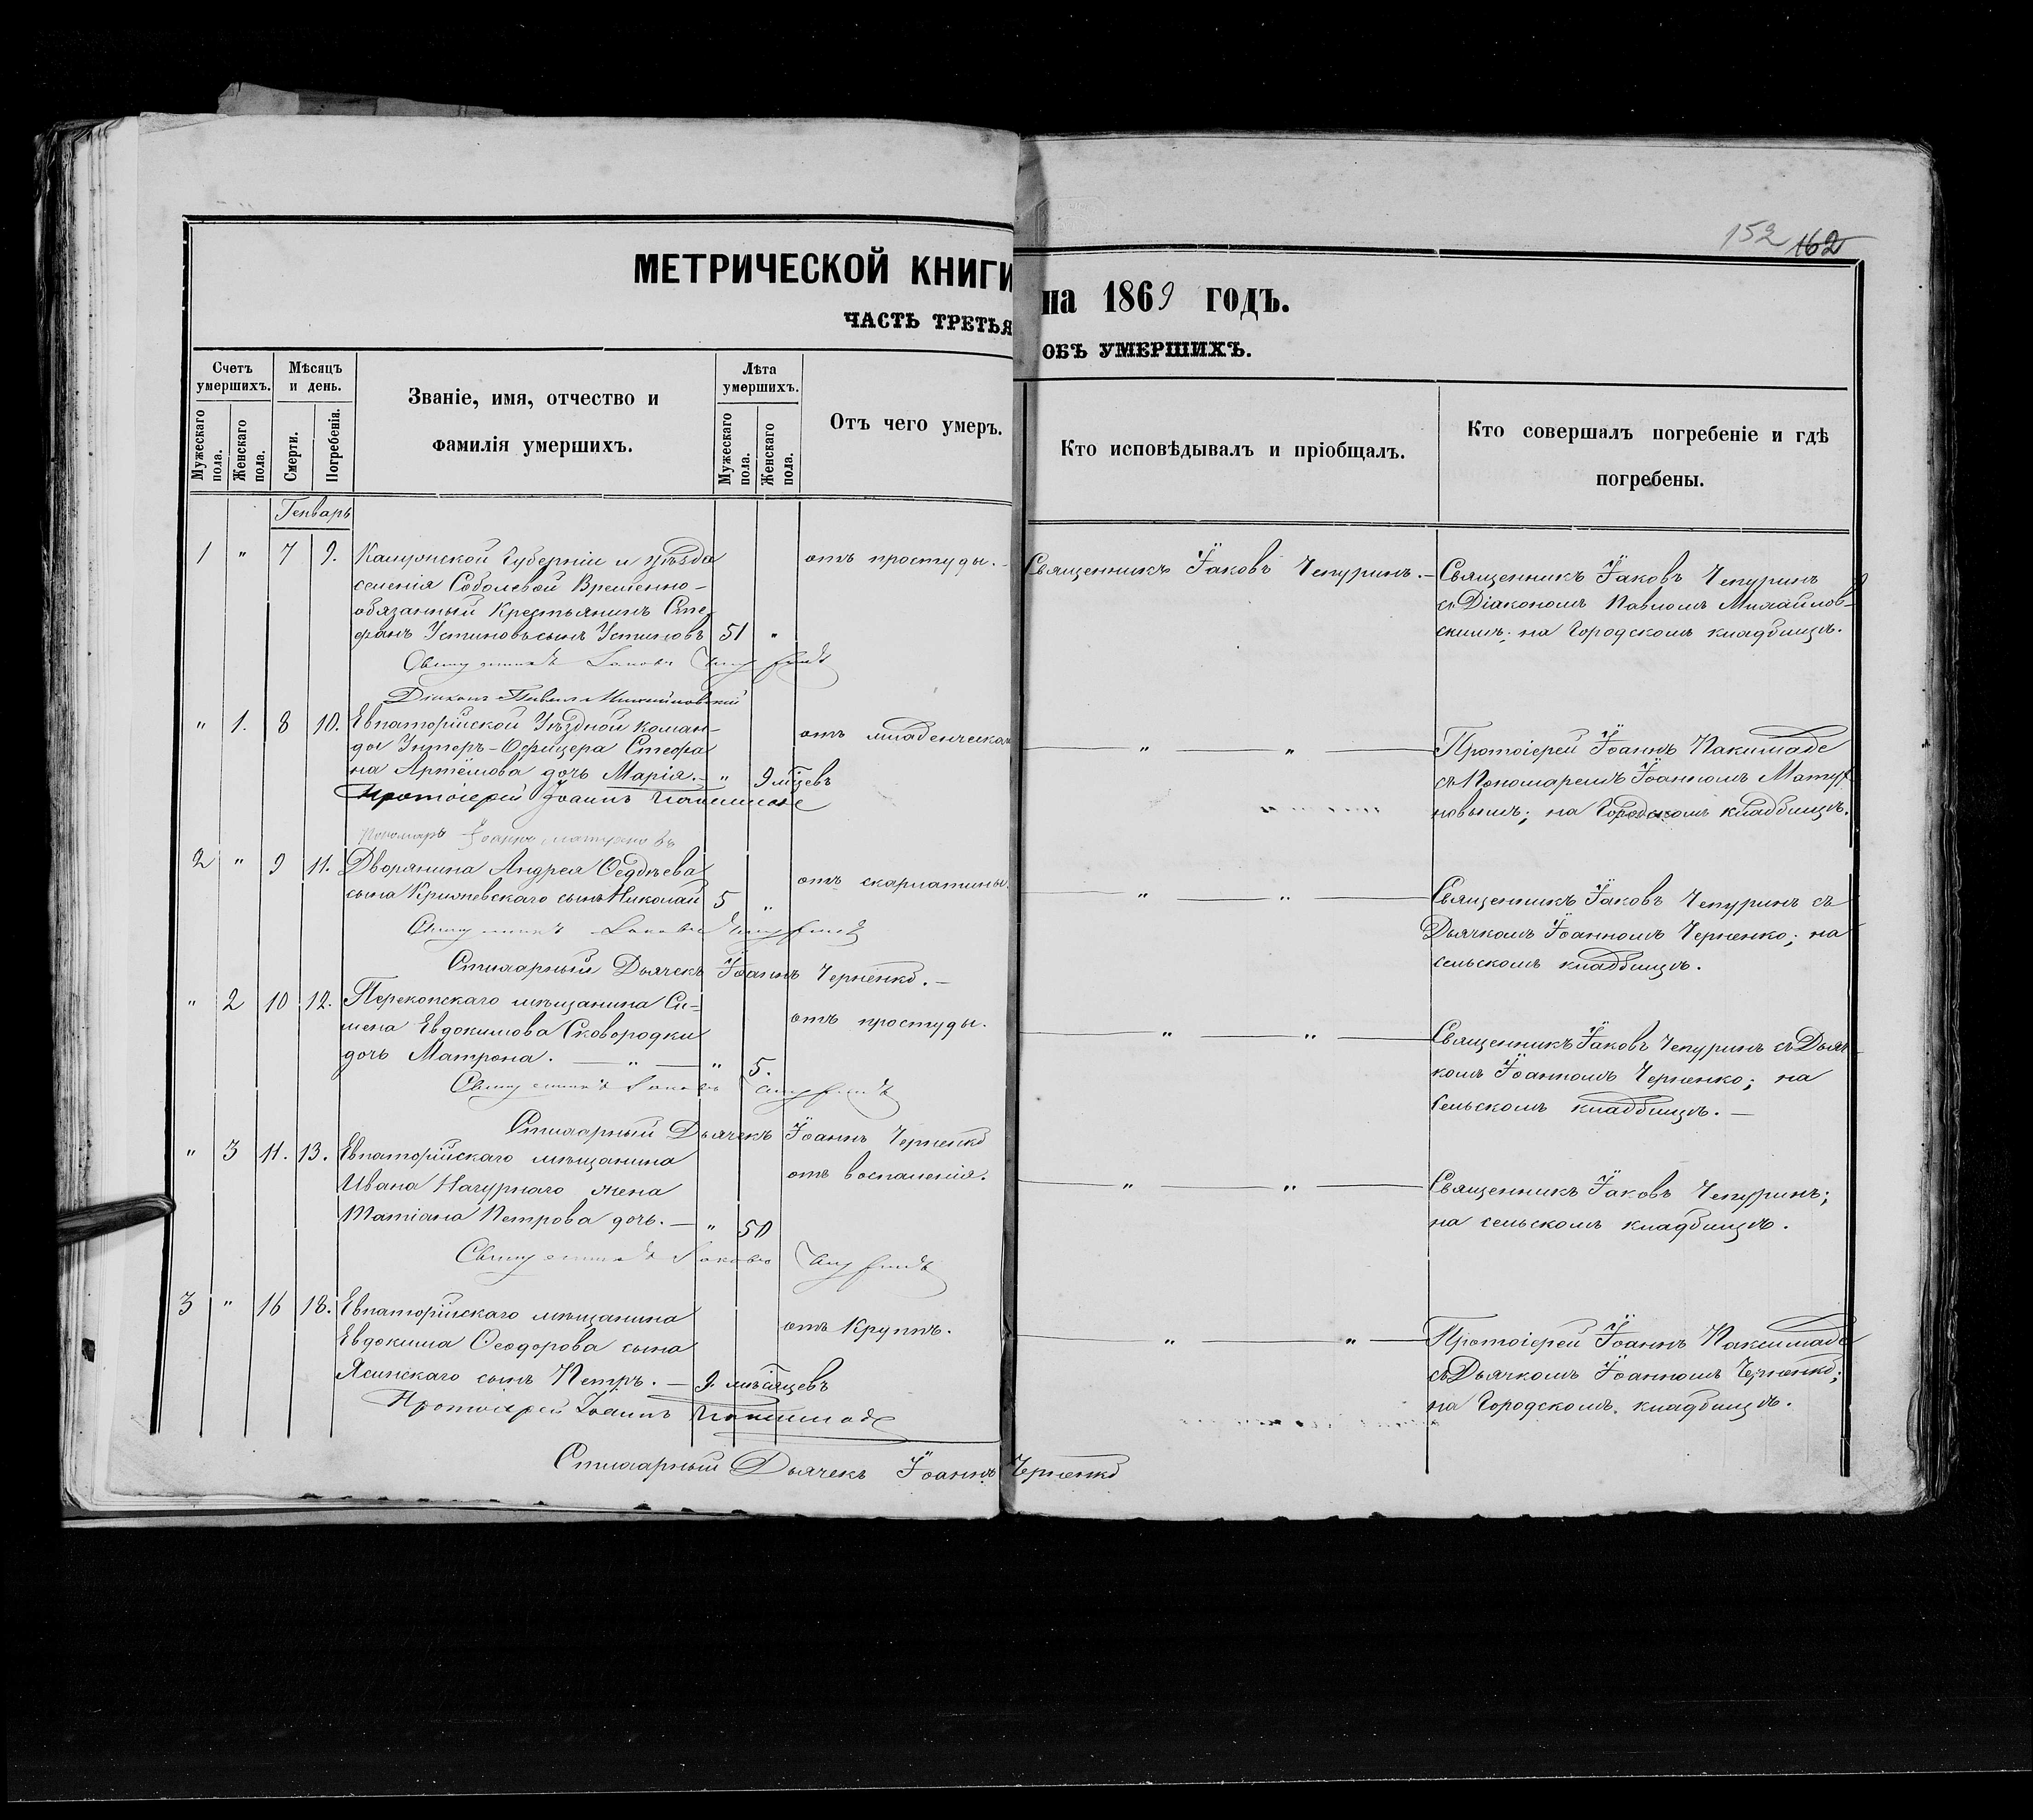 152 162
МЕТРИЧЕСКОЙ КНИГИ на 1869 ГОДЪ.
ЧАСТЬ ТРЕТЬЯ ОБЪ УМЕРШИХЪ.
Счетъ умершихъ.
Мужескаго пола.
Женскаго пола.
Мѣсяцъ и день.
Смерти.
Погребенія.
Званіе, имя, отчество и
фамилія умершихъ.
Лѣта умершихъ.
Мужескаго пола.
Женскаго пола.
Отъ чего умеръ.
Кто исповѣдывалъ и пріобщалъ.
Кто совершалъ погребеніе и гдѣ
погребены.
Генварь
1 " 7 9. Калужской Губерніи и уѣзда
селенія Соболевой Временно-
обязанный Крестьянинъ Сте-
фанъ Устиновъ сынъ Устиновъ 51 "
отъ простуды.
Священникъ Іаковъ Чепуринъ.
Священникъ Іаковъ Чепуринъ
съ Діакономъ Павломъ Михайлов-
скимъ; на Городскомъ кладбищѣ.
Священникъ Іаковъ Чепуринъ
Діаконъ Павелъ Михайловскій
" 1. 8 10. Евпаторійской Уѣздной коман-
ды Унтеръ-Офицера Стефа
на Артёмова дочь Марія. " 9 мѣсцевъ
отъ младенческой
" "
Протоіерей Іоаннъ Пакимаде
съ Пономаремъ Іоанномъ Матуш
новымъ; на Городскомъ кладбищѣ.
Протоіерей Іоаннъ
Пономарь Іоаннъ
2 " 9 11. Дворянина Андрея Ѳаддѣева
сына сынъ Николай 5 "
отъ скарлатины.
" "
Священникъ Іаковъ Чепуринъ съ
Дьячкомъ Іоанномъ Черненко; на
сельскомъ кладбищѣ.
Священникъ Іаковъ Чепуринъ
Стихарный Дьячекъ Іоаннъ Черненко.
" 2 10 12. Перекопскаго мѣщанина Си-
мена Евдокимова Сковородки
дочь Матрона. " " 5.
отъ простуды.
" "
Священникъ Іаковъ Чепуринъ съ Дьяч
комъ Іоанномъ Черненко; на
сельскомъ кладбищѣ.
Священникъ Іаковъ Чепуринъ
Стихарный Дьячекъ Іоаннъ Черненко
" 3 11. 13. Евпаторійскаго мѣщанина
Ивана Нагурнаго жена
Татіана Петрова дочь. " 50
отъ воспаленія.
" "
Священникъ Іаковъ Чепуринъ;
на сельскомъ кладбищѣ.
Священникъ Іаковъ Чепуринъ
3 " 16 18. Евпаторійскаго мѣщанина
Евдокима Ѳеодорова сына
Ясинскаго сынъ Петръ. 9. мѣсяцевъ
отъ Круппъ.
" "
Протоіерей Іоаннъ Пакимаде
съ Дьячкомъ Іоанномъ Черненко;
на Городскомъ кладбищѣ.
Протоіерей Іоаннъ
Стихарный Дьячекъ Іоаннъ Черненко